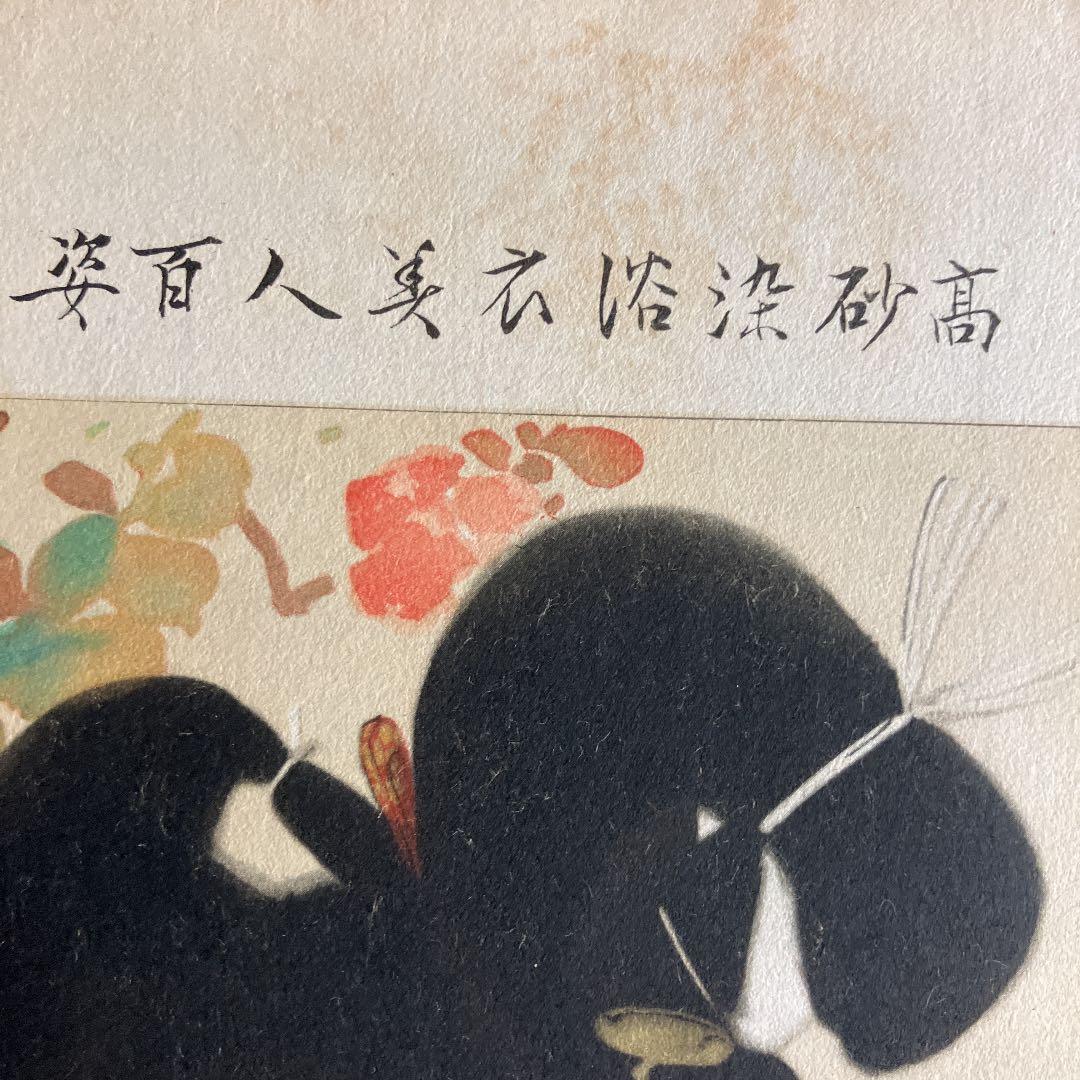 高砂染浴衣美人百姿